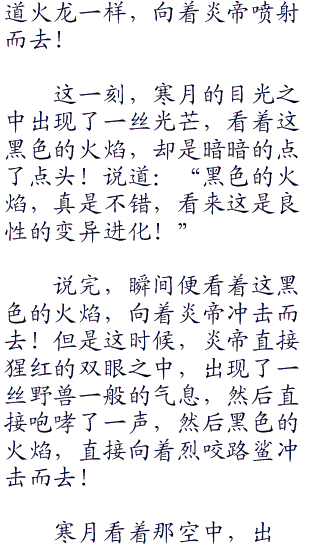 道火龙一样，向着炎帝喷射
而去！
这一刻，寒月的目光之
中出现了一丝光芒，看着这
黑色的火焰，却是暗暗的点
了点头！说道：“黑色的火
焰，真是不错，看来这是良
性的变异进化！”
说完，瞬间便看着这黑
色的火焰，向着炎帝冲击而
去！但是这时候，炎帝直接
猩红的双眼之中，出现了一
丝野兽一般的气息，然后直
接咆哮了一声，然后黑色的
火焰，直接向着烈咬路鲨冲
击而去！
寒月看着那空中，出